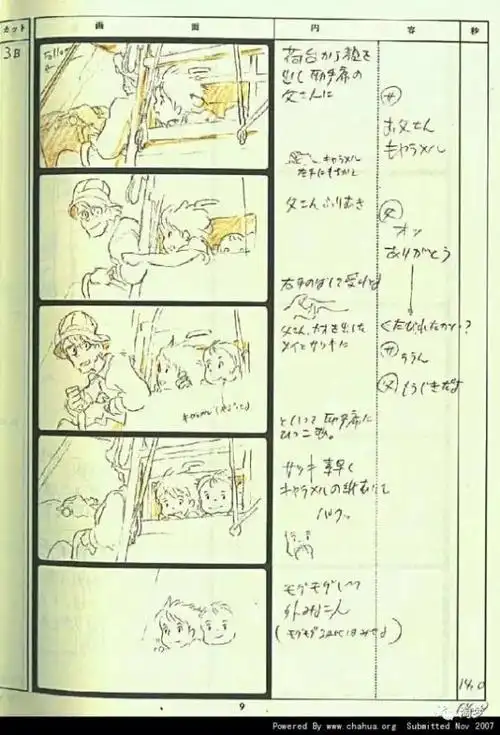 カット 画面 内容 秒
3B
Follow
荷台から顔を
出し 助手席の
父さんに
サ
お父さん
キャラメル
キャラメル
父さんふりむき
父
オッ
ありがとう
右手のばして受けとる
くたびれたかい?
父さん、カオを出した
メイとサツキに
サ ううん
父 もうじきだよ
といって 助手席に
ひっこむ。
サツキ 素早く
キャラメルの紙むいて
パク。
モグモグしつつ
外みる二人
14.0
9
Powered By www.chahua.org Submitted Nov 2007